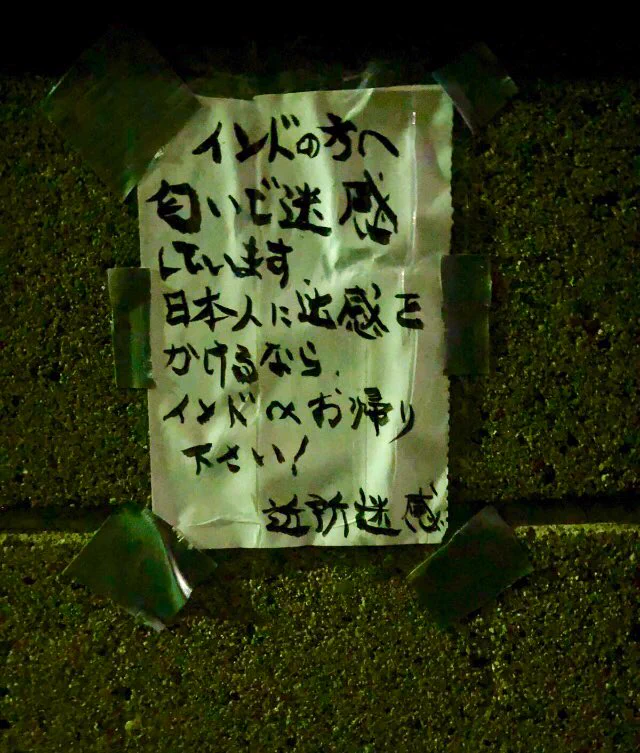 インドの方へ
匂いで迷感
しています
日本人に迷感を
かけるなら、
インドへお帰り
下さい!
近所迷感